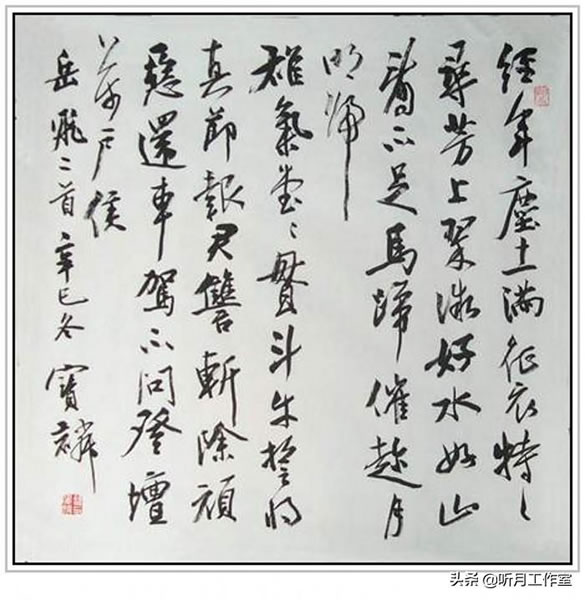 經年塵土滿征衣特〻
尋芳上翠微好水好山
看不足馬蹄催趁月
明歸
雄氣堂〻貫斗牛誓將
真節報君讎斬除頑
惡還車駕不問登壇
萬戶侯
岳飛二首辛巳冬寶麟
头条 @听月工作室